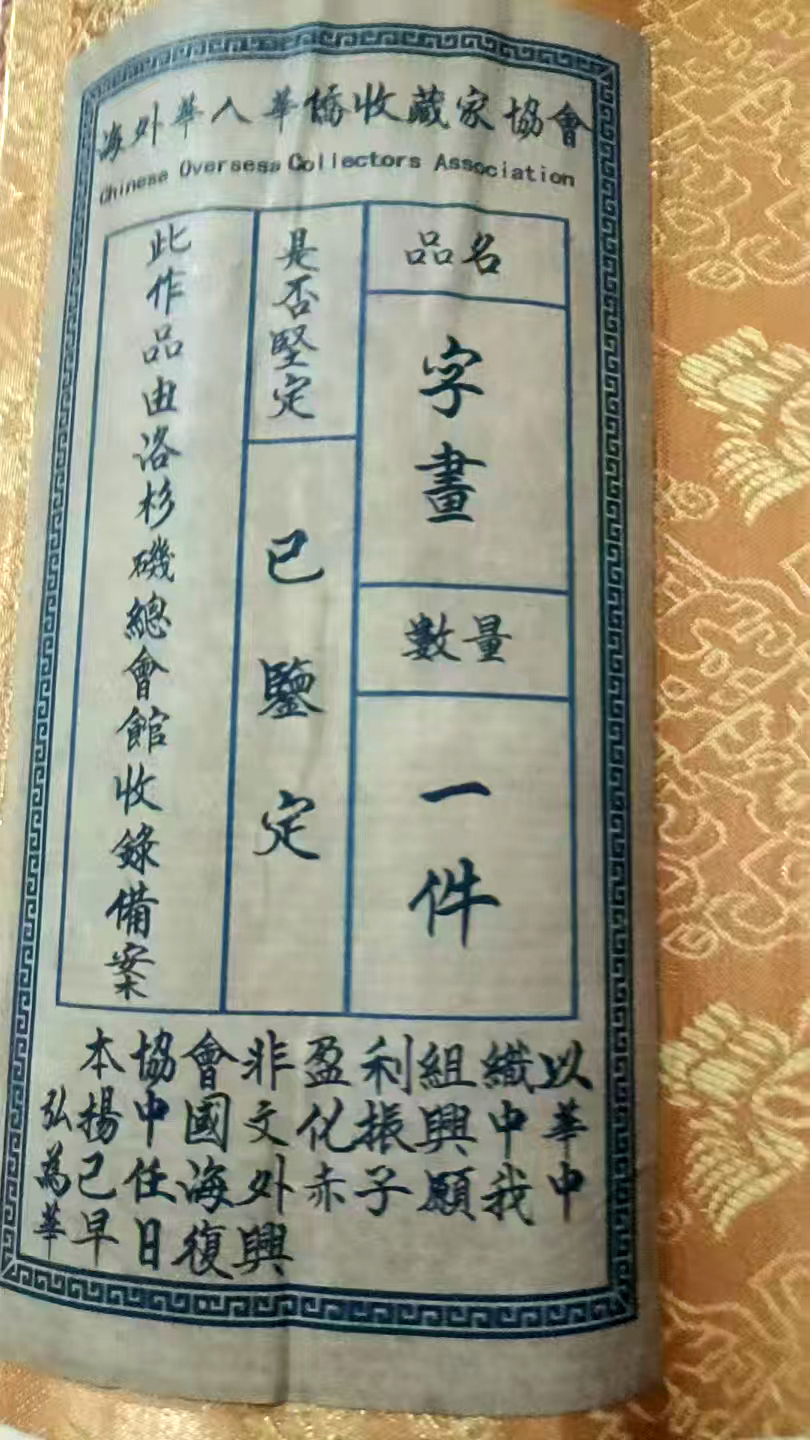 海外華人華僑收藏家協會
Chinese Oversess Collectors Association
品名
字畫
數量
一件
是否堅定
已鑒定
此作品由洛杉磯總會館收錄備案
本協會非盈利組織以
弘揚中國文化振興中華
為己任海外赤子願我中
華早日復興